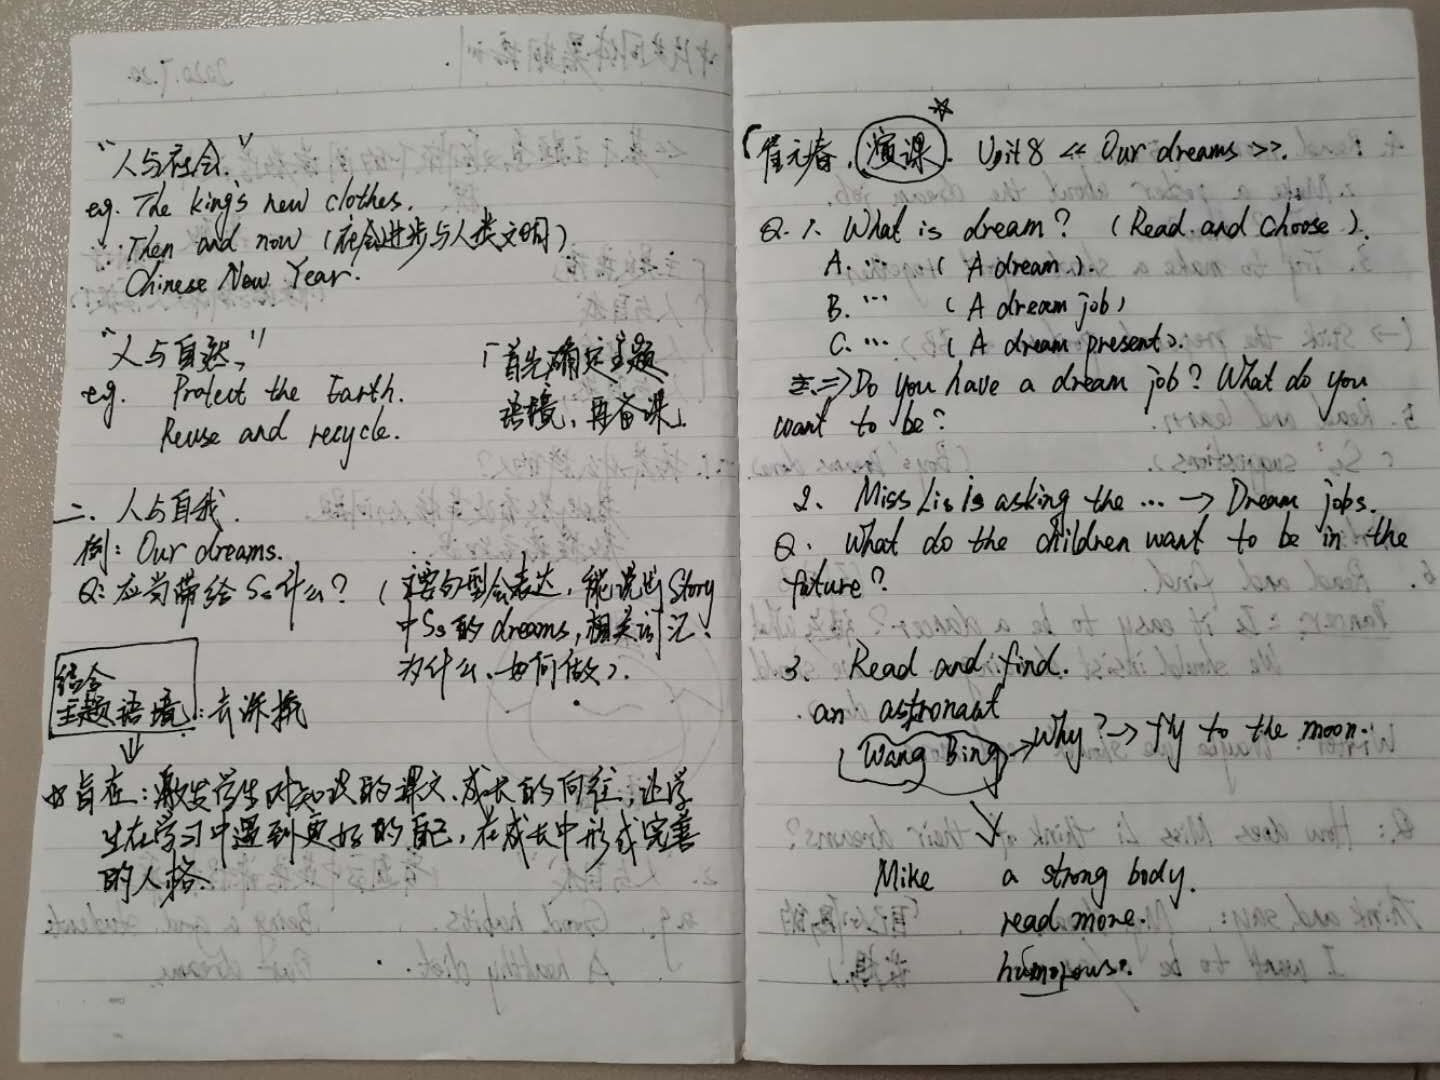 “人与社会”
eg. The king's new clothes.
Then and now (社会进步与人类文明)
Chinese New Year.
“人与自然”
eg. Protect the Earth.
Reuse and recycle.
「首先确定主题
语境、再备课」
二、人与自我.
例: Our dreams.
Q: 应当带给Ss什么? (主要句型会表达, 能说出Story
中Ss的dreams, 相关词汇.
为什么、如何做).
结合
主题语境: 去深挖
旨在: 激发学生对知识的课文、成长的向往, 让学
生在学习中遇到更好的自己, 在成长中形成完善
的人格.
演课. Unit 8 << Our dreams >>.
Q. 1. What is dream? (Read and choose).
A. ... (A dream).
B. ... (A dream job)
C. ... (A dream present).
=> Do you have a dream job? What do you
want to be?
2. Miss Li is asking the ... → Dream jobs.
Q. What do the children want to be in the
future?
3. Read and find.
an astronaut
Wang Bing → Why? → fly to the moon.
Mike a strong body.
read more.
humorous.